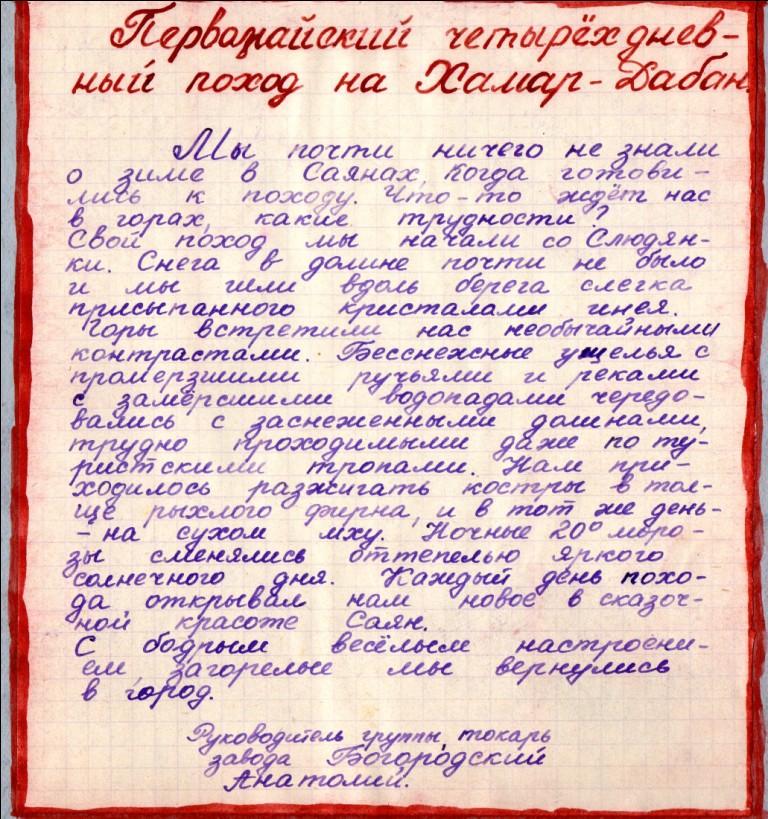 Первомайский четырёхднев-
ный поход на Хамар-Дабан.
Мы почти ничего не знали
о зиме в Саянах, когда готови-
лись к походу. Что-то ждёт нас
в горах, какие трудности?
Свой поход мы начали со Слюдян-
ки. Снега в долине почти не было
и мы шли вдоль берега слегка
присыпанного кристалами инея.
Горы встретили нас необычайными
контрастами. Бесснежные ущелья с
промерзшими ручьями и реками
с замерзшими водопадами чередо-
вались с заснеженными долинами,
трудно проходимыми даже по ту-
ристскими тропами. Нам при-
ходилось разжигать костры в тол-
ще рыхлого фирна, и в тот же день-
- на сухом мху. Ночные 20° моро-
зы сменялись оттепелью яркого
солнечного дня. Каждый день похо-
да открывал нам новое в сказоч-
ной красоте Саян.
С бодрым весёлым настроени-
ем загорелые мы вернулись
в город.
Руководитель группы, токарь
завода Богородский
Анатолий.